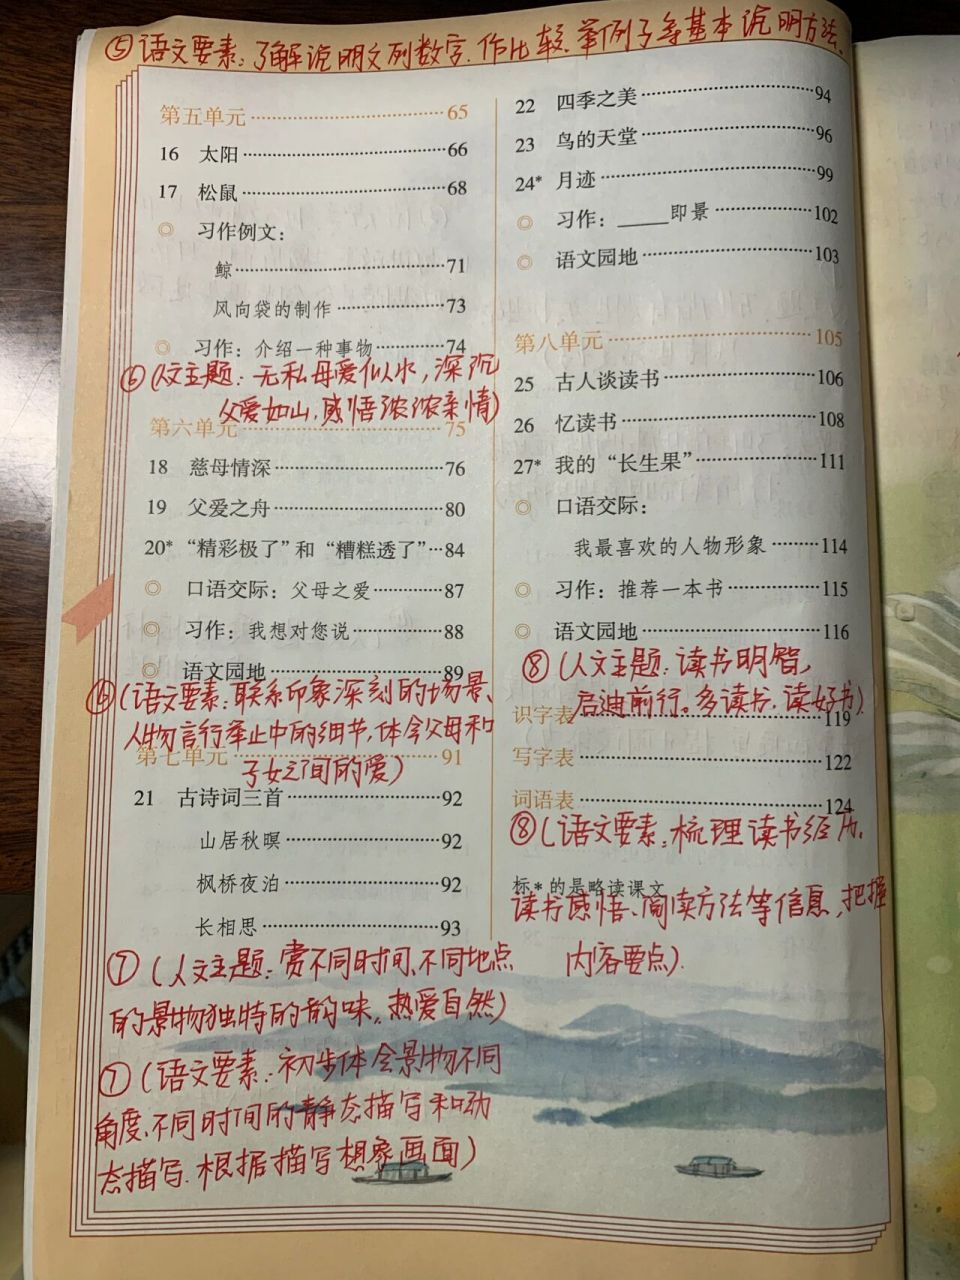 ⑤语文要素：了解说明文列数字、作比较、举例子等基本说明方法、
第五单元 65
16 太阳 66
17 松鼠 68
◎ 习作例文：
鲸 71
风向袋的制作 73
◎ 习作：介绍一种事物 74
⑥(人文主题：无私母爱似水，深沉
父爱如山，感悟浓浓亲情)
第六单元 75
18 慈母情深 76
19 父爱之舟 80
20* “精彩极了”和“糟糕透了” 84
◎ 口语交际：父母之爱 87
◎ 习作：我想对您说 88
◎ 语文园地 89
⑥(语文要素：联系印象深刻的场景、
人物言行举止中的细节，体会父母和
子女之间的爱)
第七单元 91
21 古诗词三首 92
山居秋暝 92
枫桥夜泊 92
长相思 93
⑦(人文主题：赏不同时间、不同地点
的景物独特的韵味，热爱自然)
⑦(语文要素：初步体会景物不同
角度、不同时间的静态描写和动
态描写，根据描写想象画面)
22 四季之美 94
23 鸟的天堂 96
24* 月迹 99
◎ 习作：_____即景 102
◎ 语文园地 103
第八单元 105
25 古人谈读书 106
26 忆读书 108
27* 我的“长生果” 111
◎ 口语交际：
我最喜欢的人物形象 114
◎ 习作：推荐一本书 115
◎ 语文园地 116
⑧(人文主题：读书明智，
启迪前行。多读书，读好书)
识字表 119
写字表 122
词语表 124
⑧(语文要素：梳理读书经历、
标*的是略读课文
读书感悟、阅读方法等信息，把握
内容要点)